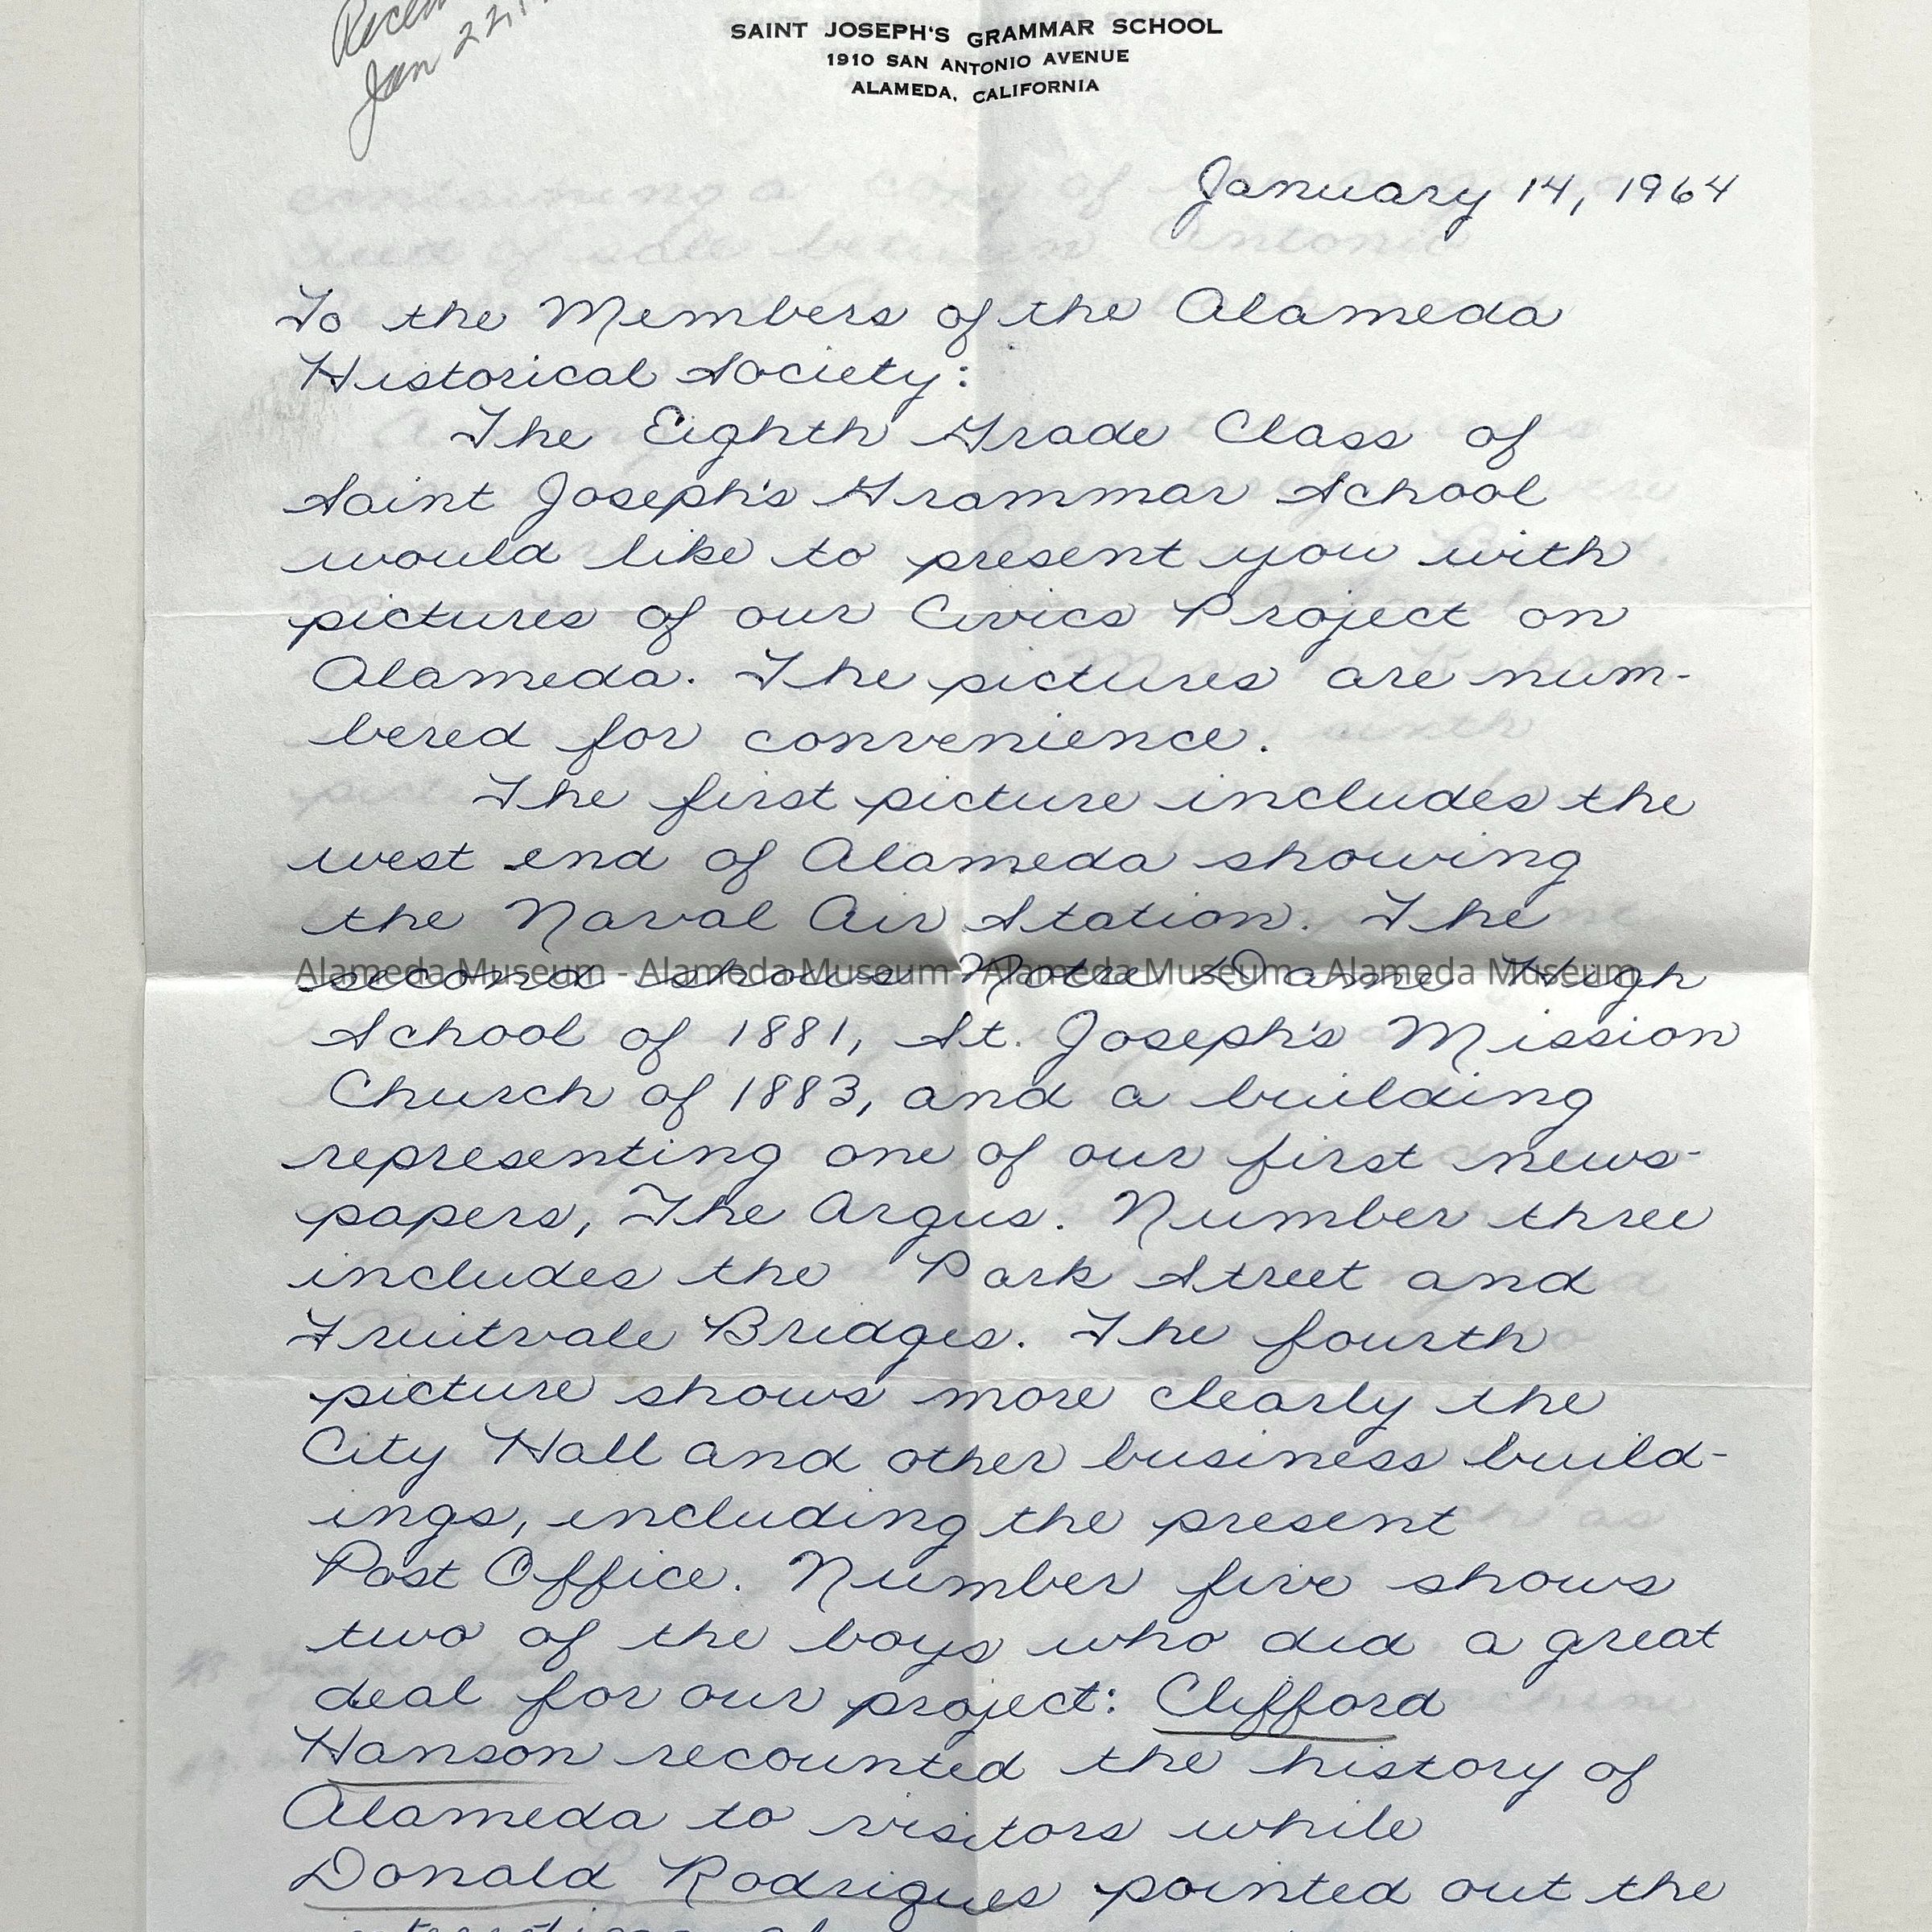 Jan 22,
SAINT JOSEPH'S GRAMMAR SCHOOL
1910 SAN ANTONIO AVENUE
ALAMEDA, CALIFORNIA
January 14, 1964
To the Members of the Alameda
Historical Society:
The Eighth Grade Class of
Saint Joseph's Grammar School
would like to present you with
pictures of our Civics Project on
Alameda. The pictures are num-
bered for convenience.
The first picture includes the
west end of Alameda showing
the Naval Air Station. The
second shows Notre Dame High
Alameda Museum - Alameda Museum - Alameda Museum - Alameda Museum
School of 1881, St. Joseph's Mission
Church of 1883, and a building
representing one of our first news-
papers, The Argus. Number three
includes the Park Street and
Fruitvale Bridges. The fourth
picture shows more clearly the
City Hall and other business build-
ings, including the present
Post Office. Number five shows
two of the boys who did a great
deal for our project: Clifford
Hanson recounted the history of
Alameda to visitors while
Donald Rodrigues pointed out the